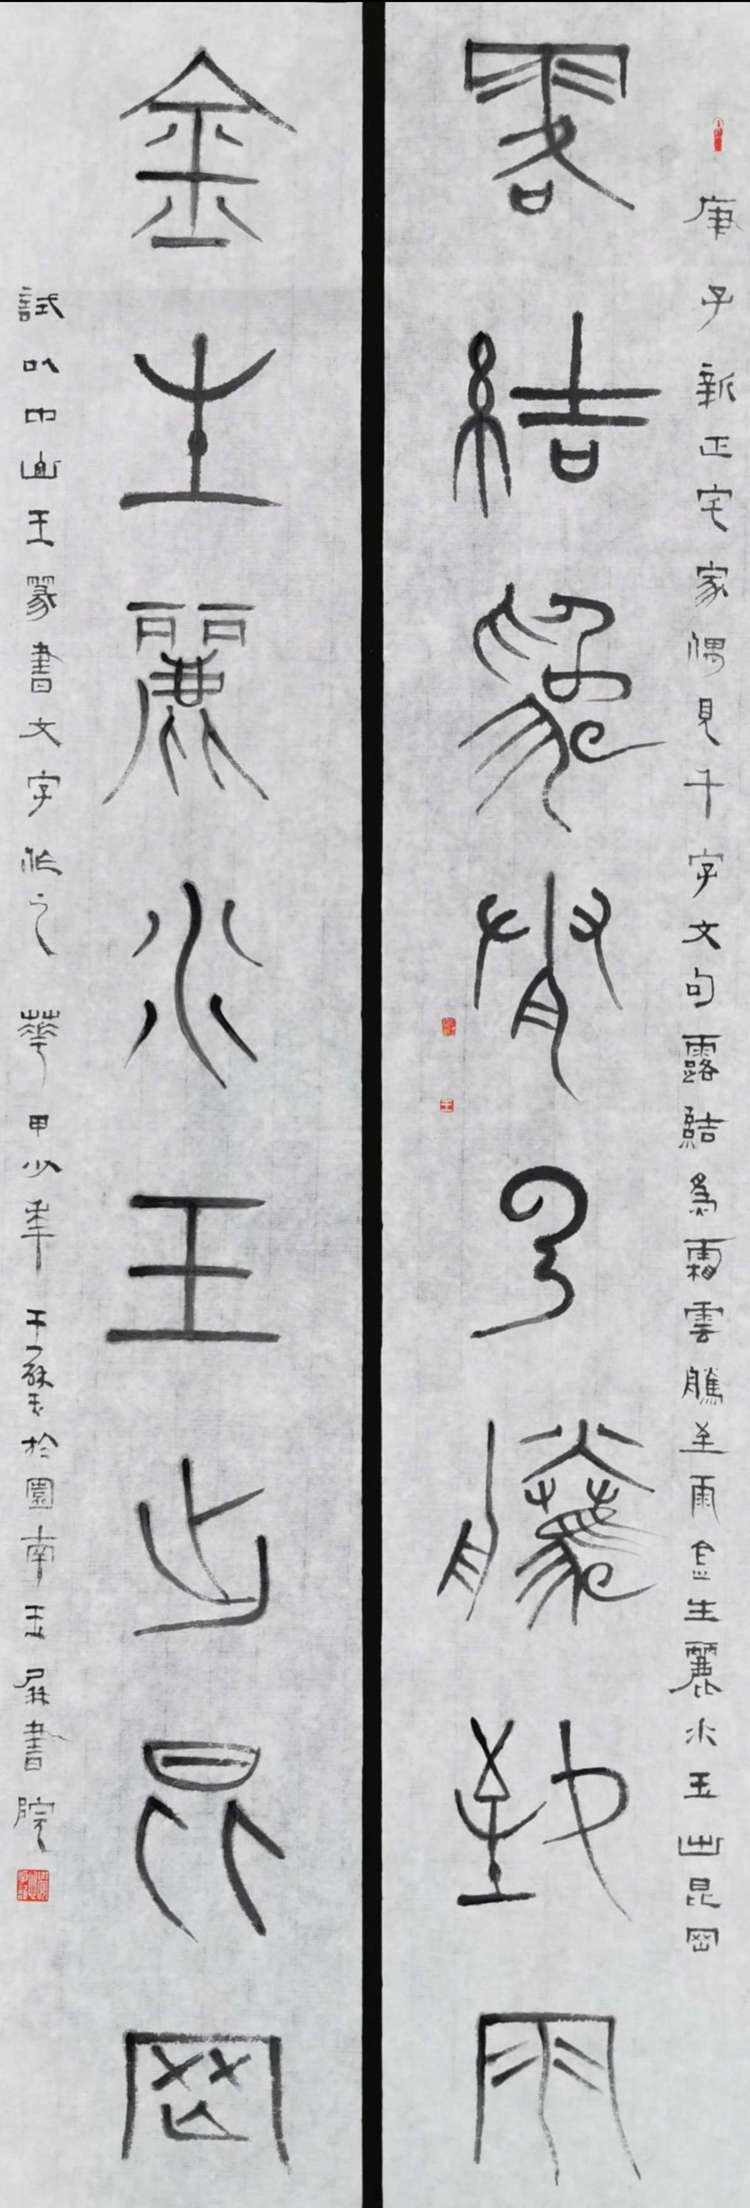 庚子新正宅家偶見千字文句露結為霜雲騰至雨金生麗水玉出昆岡
露結為霜云騰致雨
金生麗水玉出昆岡
試以中山王篆書文字作之 華甲少年於園南玉屏書院